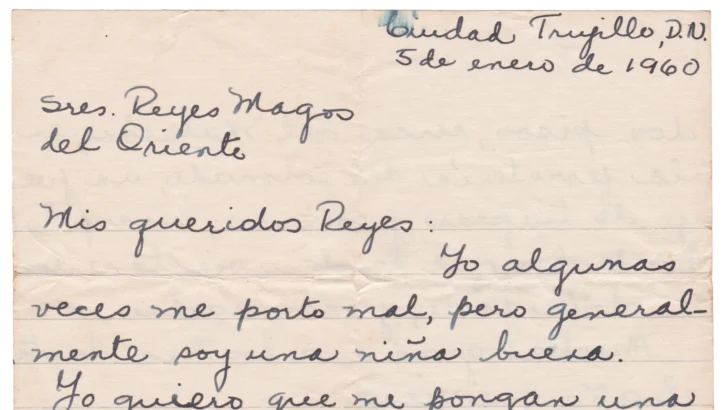 Ciudad Trujillo, D.N.
5 de enero de 1960
Sres. Reyes Magos
del Oriente
Mis queridos Reyes:
Yo algunas
veces me porto mal, pero general-
mente soy una niña buena.
Yo quiero que me pongan una